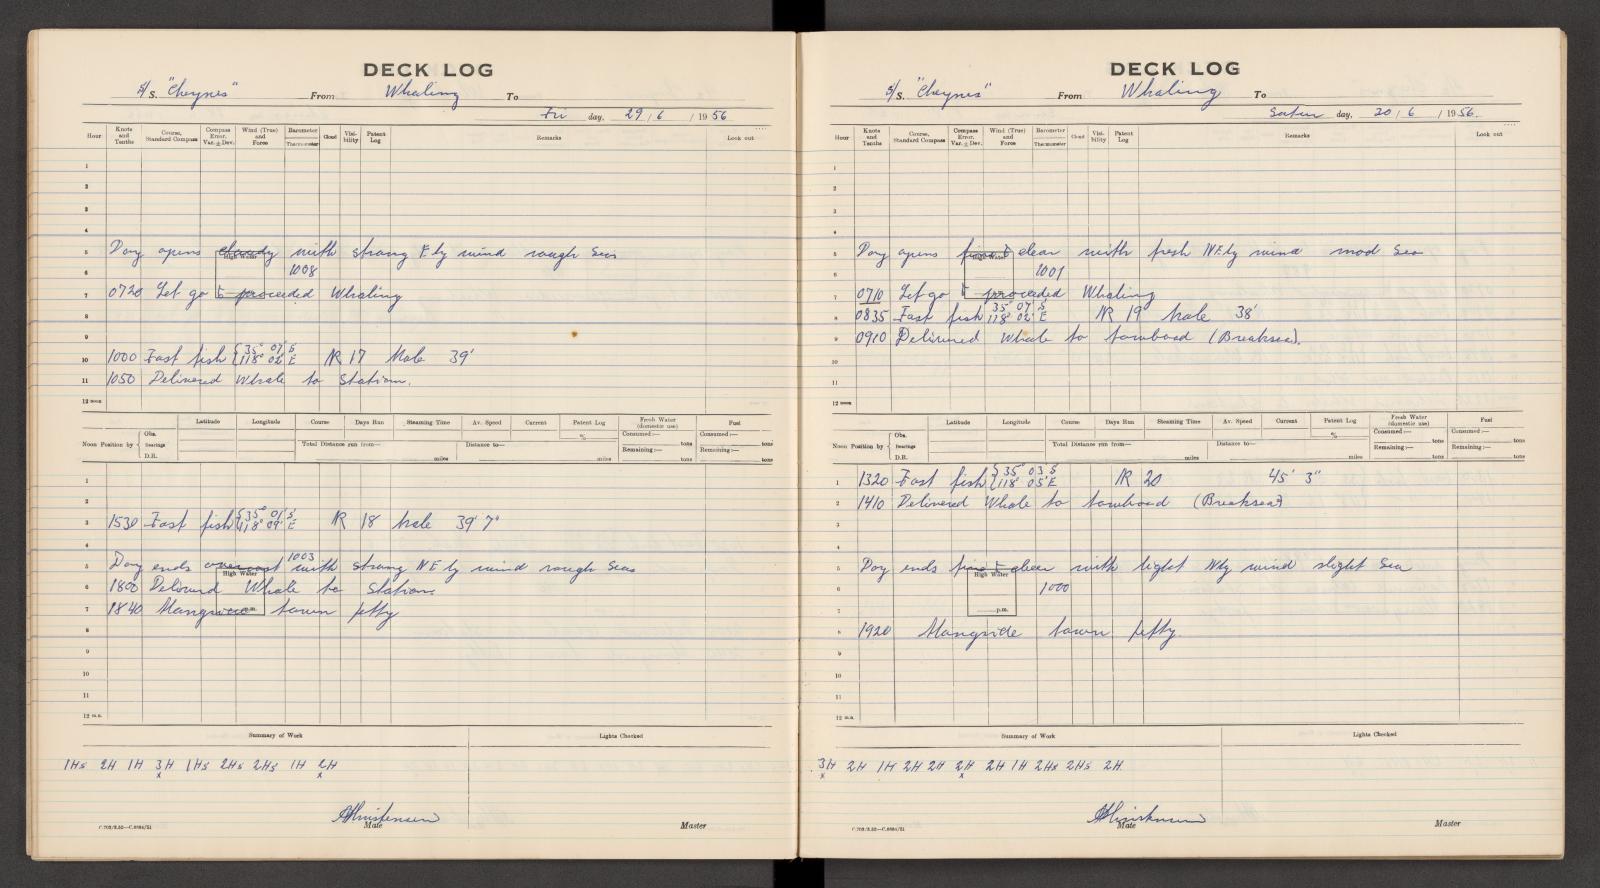 DECK LOG
S/S. "Cheynes" From Whaling To
Fri day, 29 / 6 / 1956
Hour Knots and Tenths Course, Standard Compass Compass Error. Var. ± Dev. Wind (True) and Force Barometer Thermometer Cloud Visibility Patent Log Remarks Look out
1
2
3
4
5 Day opens cloudy with strong E ly wind rough Seas
High Water
6 1008
7 0720 Let go & proceeded Whaling
8
9
10 1000 Fast fish { 35° 07' S 118° 02' E NR 17 Male 39'
11 1050 Delivered Whale to Station.
12 noon
Latitude Longitude Course Days Run Steaming Time Av. Speed Current Patent Log Fresh Water (domestic use) Fuel
Noon Position by { Obs. Bearings D.R. Total Distance run from— miles Distance to— % Consumed:— tons Remaining:— tons Consumed:— tons Remaining:— tons
1
2
3 1530 Fast fish { 35° 01' S 118° 09' E NR 18 Male 39' 7"
4
1003
5 Day ends overcast with strong NE ly wind rough Seas
High Water
6 1800 Delivered Whale to Station
7 1840 Alongside town jetty
p.m.
8
9
10
11
12 m.n.
Summary of Work Lights Checked
1Hs 2H 1H 3H 1Hs 2Hs 2Hs 1H 2H
x x
Christensen
Mate Master
C.702/3.52—C.6894/51
DECK LOG
S/S. "Cheynes" From Whaling To
Satur day, 30 / 6 / 1956.
Hour Knots and Tenths Course, Standard Compass Compass Error. Var. ± Dev. Wind (True) and Force Barometer Thermometer Cloud Visibility Patent Log Remarks Look out
1
2
3
4
5 Day opens fine & clear with fresh NE ly wind mod Sea
High Water
6 1001
7 0710 Let go & proceeded Whaling
8 0835 Fast fish 35° 07' S 118° 02' E NR 19 Male 38'
9 0910 Delivered Whale to towboad (Breaksea).
10
11
12 noon
Latitude Longitude Course Days Run Steaming Time Av. Speed Current Patent Log Fresh Water (domestic use) Fuel
Noon Position by { Obs. Bearings D.R. Total Distance run from— miles Distance to— % Consumed:— tons Remaining:— tons Consumed:— tons Remaining:— tons
1 1320 Fast fish { 35° 03 S 118° 05' E NR 20 45' 3"
2 1410 Delivered Whale to towboad (Breaksea)
3
4
5 Day ends fine & clear with light Nly wind slight Sea
High Water
6 1000
7
p.m.
8 1920 Alongside town jetty.
9
10
11
12 m.n.
Summary of Work Lights Checked
3H 2H 1H 2H 2H 2H 2H 1H 2Hs 2Hs 2H
x x
Mate Master
C.702/3.52—C.6894/51